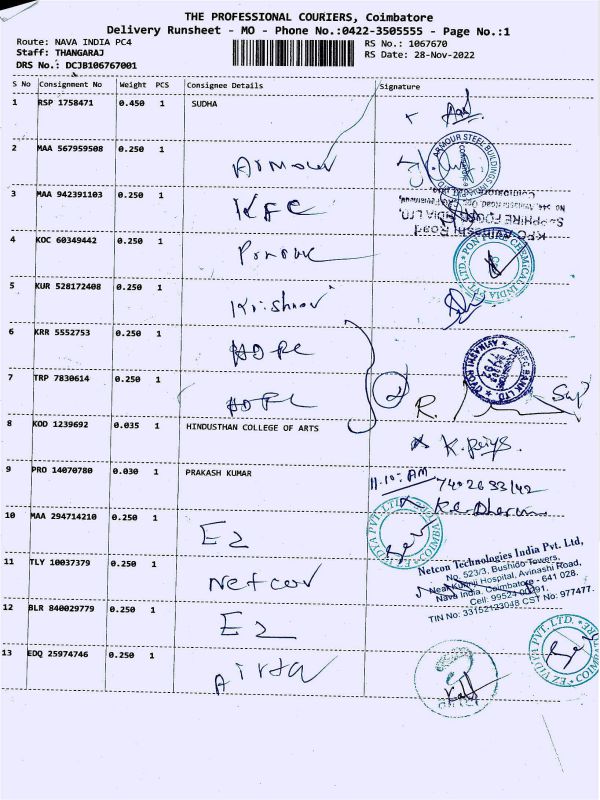 THE PROFESSIONAL COURIERS, Coimbatore
Delivery Runsheet - MO - Phone No.:0422-3505555 - Page No.:1
Route: NAVA INDIA PC4
RS No.: 1067670
Staff: THANGARAJ
RS Date: 28-Nov-2022
DRS No.: DCJB106767001
S No Consignment No Weight PCS Consignee Details Signature
1 RSP 1758471 0.450 1 SUDHA
2 MAA 567959508 0.250 1
Armour
ARMOUR STEEL BUILDINGS INDIA
3 MAA 942391103 0.250 1
KFC
KFC Avinashi Road
SAPPHIRE FOODS INDIA LTD,
4 KOC 60349442 0.250 1
PON PURE CHEMICAL INDIA PVT. LTD.
5 KUR 528172408 0.250 1
Krishnav
6 KRR 5552753 0.250 1
HDFC
HDFC BANK LTD * AVINASHI ROAD *
7 TRP 7830614 0.250 1
HDFC
2
R.
8 KOD 1239692 0.035 1 HINDUSTHAN COLLEGE OF ARTS
K. Priya
9 PRO 14070780 0.030 1 PRAKASH KUMAR
11.10. AM
10 MAA 294714210 0.250 1
Ez
EZ VIDYA PVT. LTD.
11 TLY 10037379 0.250 1
Netcov
Netcon Technologies India Pvt. Ltd,
No. 523/3, Bushido Towers,
Near Kuppji Hospital, Avinashi Road,
Nava India, Coimbatore - 641 028.
TIN No: 33152123048 CST No: 977477
12 BLR 840029779 0.250 1
Ez
EZ VIDYA PVT. LTD.
13 EDQ 25974746 0.250 1
Airtel